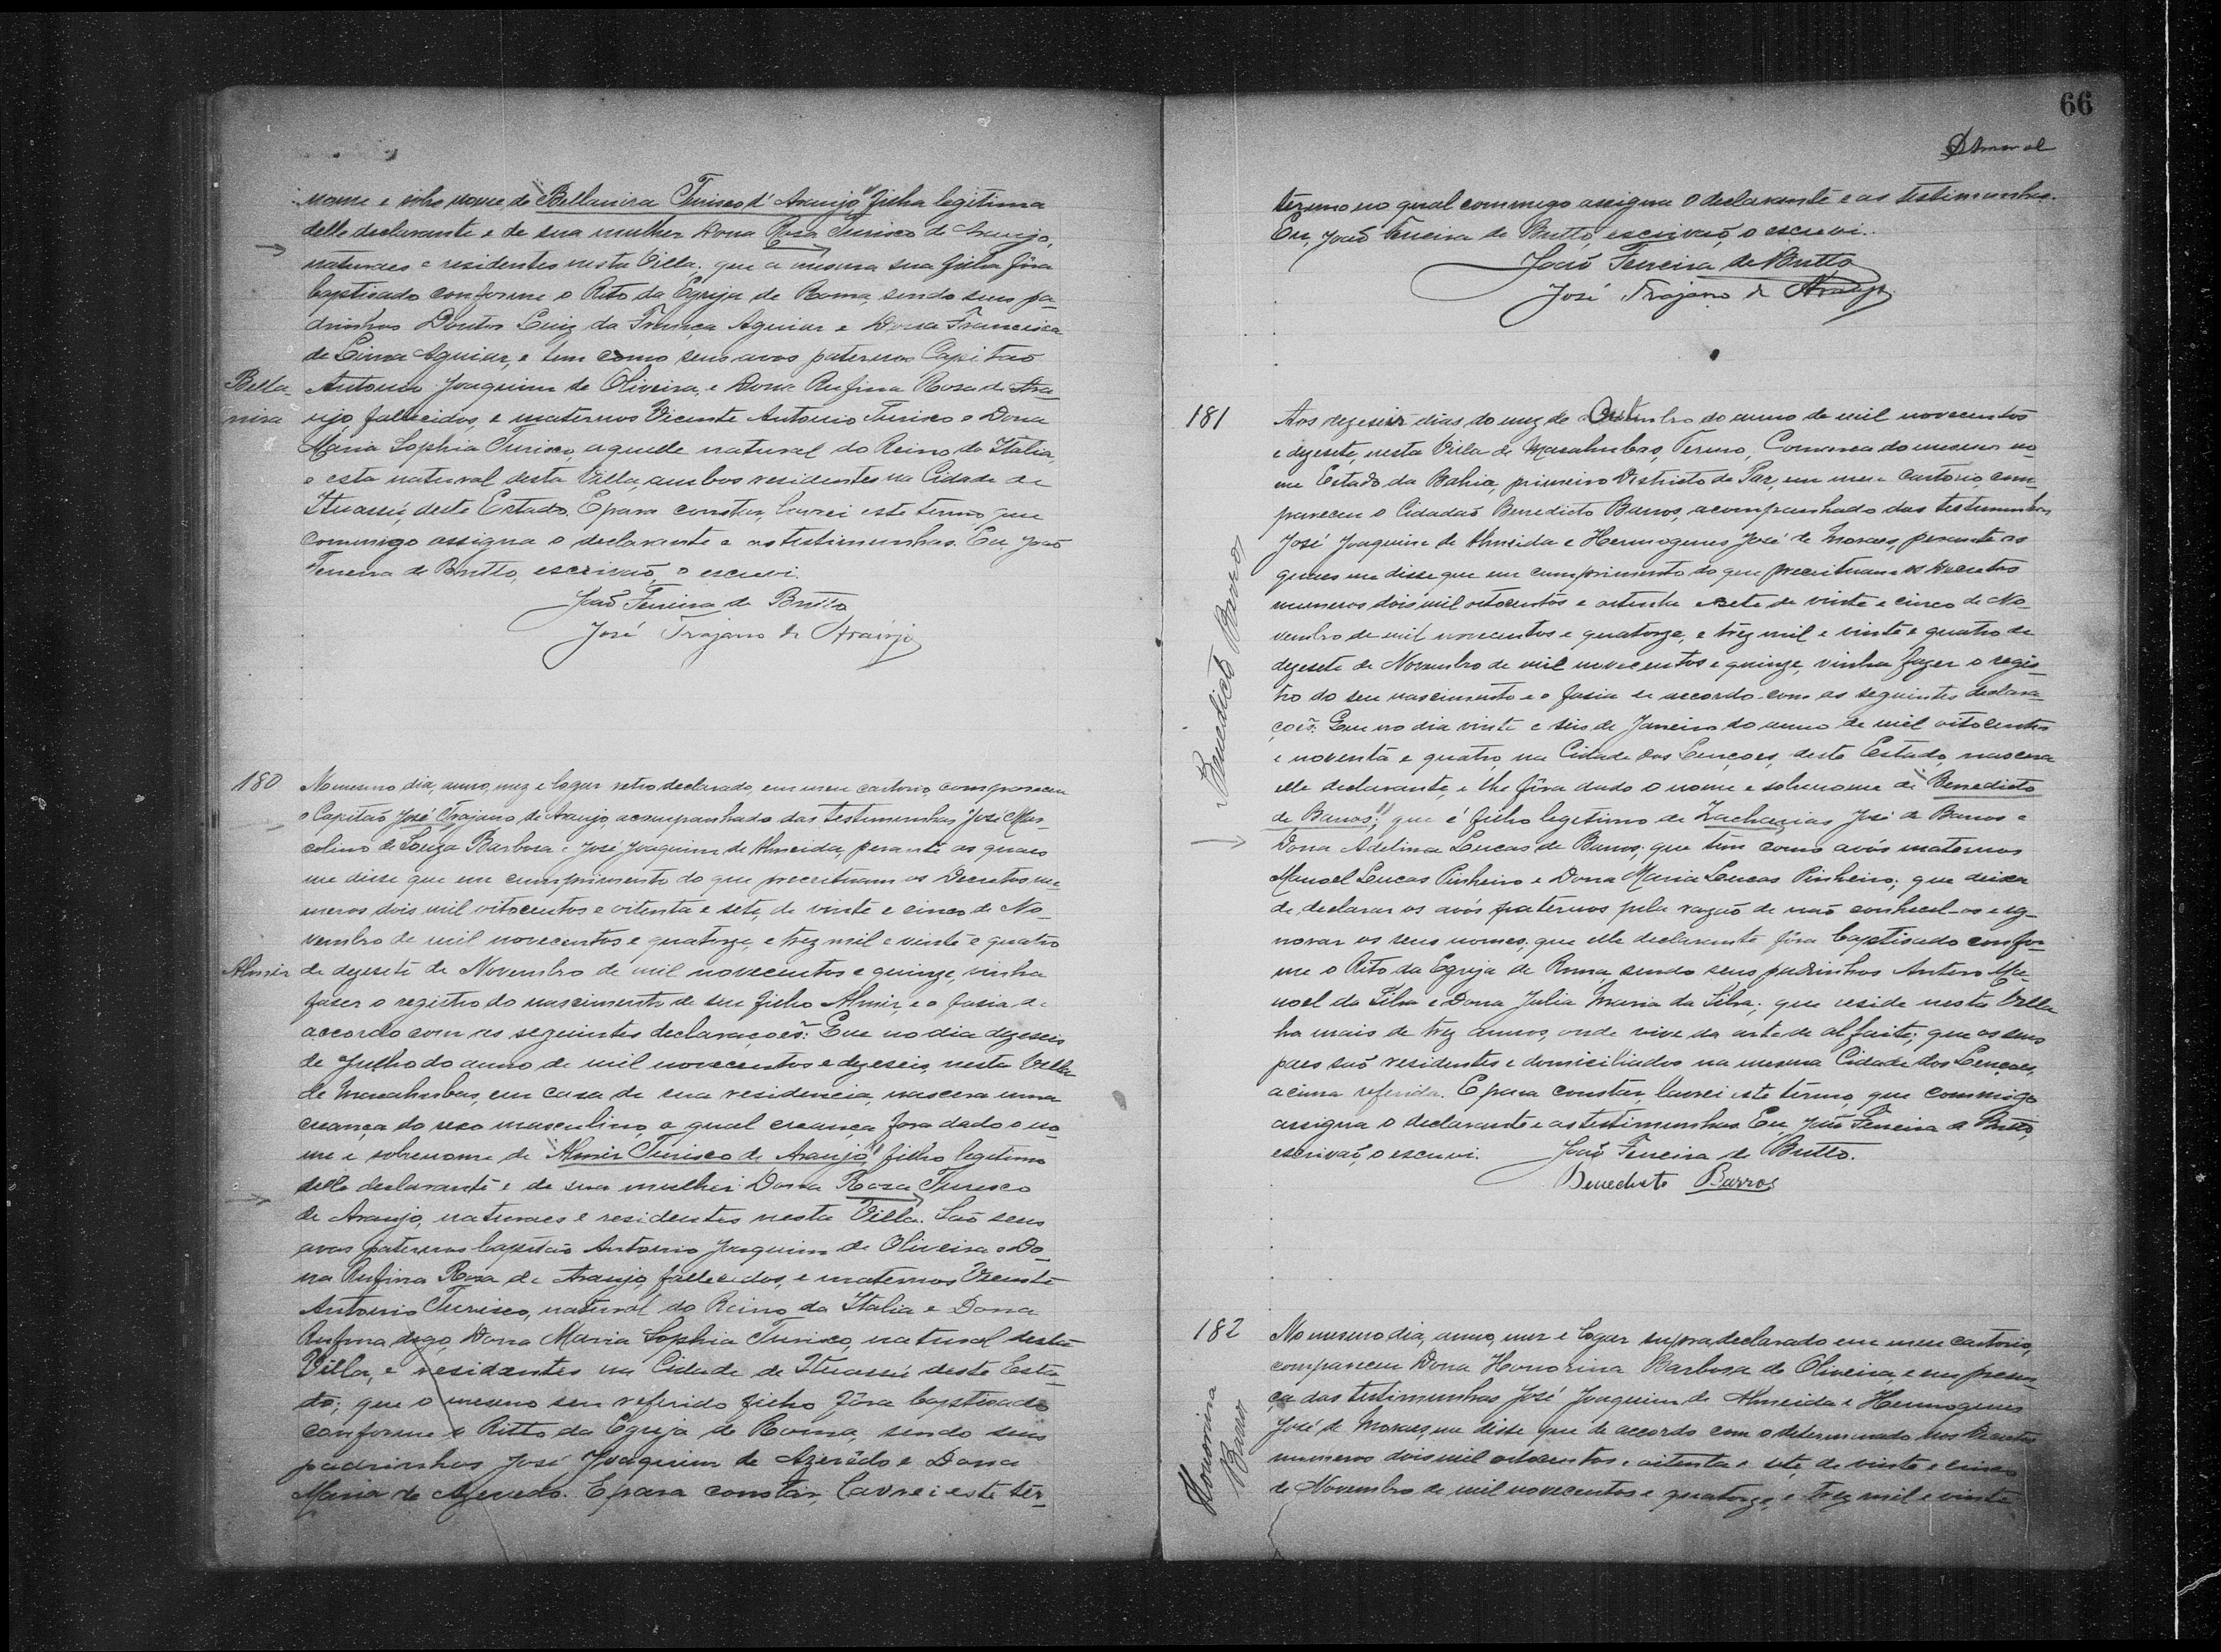 nome e sobre nome de "Bellanira Turisco d'Araujo" filha legitima
delle declarante e de sua mulher Dona Rosa Turisco de Araujo,
naturaes e residentes nesta Villa; que a mesma sua filha fôra
baptisado conforme o Rito da Egreja de Roma, sendo seus pa-
drinhos Doutor Luiz da França Aguiar e Dona Francisca
de Lima Aguiar, e tem como seus avos paternos Capitão
Bella- Antonio Joaquim de Oliveira, e Dona Rufina Rosa de Ara-
nira ujo fallecidos, e maternos Vicente Antonio Turisco e Dona
Maria Sophia Turisco, aquelle natural do Reino da Italia,
e esta natural desta Villa, ambos residentes na Cidade de
Ituassú, deste Estado. E para constar, lavrei este termo que
commigo assigna o declarante e as testimunhas. Eu, João
Ferreira de Britto, escrivaõ, o escrevi.
João Ferreira de Britto
José Trajano de Araujo
180 No mesmo dia, anno, mez e logar retro declarado, em meu cartorio, compareceu
o Capitaõ José Trajano de Araujo, acompanhado das testimunhas José Mar-
colino de Souza Barbosa e José Joaquim de Almeida, perante as quaes
me disse que em cumprimento do que preceituam os Decretos nu-
meros dois mil oitocentos e oitenta e sete, de vinte e cinco de No-
vembro de mil novecentos e quatorze, e trez mil e vinte e quatro
Almir de dezesete de Novembro de mil novecentos e quinze, vinha
faser o registro do nascimento de seu filho Almir, e o fasia de
accordo com as seguintes declaraçoẽs: Que no dia dezeseis
de Julho do anno de mil novecentos e dezeseis, nesta Villa
de Macahubas, em casa de sua residencia, nascera uma
creança do sexo masculino, a qual creança fora dado o no-
me e sobrenome de "Almir Turisco de Araujo" filho legitimo
delle declarante e de sua mulher Dona Rosa Turisco
de Araujo, naturaes e residentes nesta Villa. Saõ seus
avos paternos Capitão Antonio Joaquim de Oliveira e Do-
na Rufina Rosa de Araujo, fallecidos, e maternos Vicente
Antonio Turisco, natural do Reino da Italia e Dona
Rufina digo, Dona Maria Sophia Turisco, natural desta
Villa, e residentes na Cidade de Ituassú deste Esta-
do; que o mesmo seu referido filho fôra baptisado
conforme o Ritto da Egreja de Roma, sendo seus
padrinhos José Joaquim de Azevêdo e Dona
Maria de Azevedo. E para constar, lavrei este ter-
66
termo no qual commigo assigna o declarante e as testimunhas.
Eu, João Ferreira de Britto, escrivaõ, o escrevi.
João Ferreira de Britto
José Trajano de Araujo
181 Aos dezeseis dias do mez de Outubro do anno de mil novecentos
e dezesete, nesta Villa de Macahubas, Termo, Comarca do mesmo no-
me Estado da Bahia, primeiro Districto de Paz, em meu cartorio, com-
pareceu o Cidadaõ Benedicto Barros, acompanhado das testimunhas
José Joaquim de Almeida e Hermogenes José de Moraes, perante as
quaes me disse que em cumprimento do que preceituam os Decretos
numeros dois mil oitocentos e oitenta e sete de vinte e cinco de No-
vembro de mil novecentos e quatorze, e trêz mil e vinte e quatro de
dezesete de Novembro de mil novecentos e quinze, vinha fazer o regis-
tro do seu nascimento e o fasia de accordo com as seguintes declara-
çoẽs: Que no dia vinte e seis de Janeiro do anno de mil oitocentos
e noventa e quatro, na Cidade dos Lençoes, deste Estado, nascera
elle declarante, e lhe fôra dado o nome e sobrenome de "Benedicto
de Barros"; que é filho legitimo de Zacharias José de Barros e
Dona Adelina Lucas de Barros; que tem como avós maternos
Manoel Lucas Pinheiro e Dona Maria Lucas Pinheiro; que deixa
de declarar os avós paternos pela razaõ de naõ conhecel-os e ig-
norar os seus nomes, que elle declarante fôra baptisado confor-
me o Rito da Egreja de Roma sendo seus padrinhos Antero Ma-
noel da Silva e Dona Julia Maria da Silva; que reside nesta Villa
ha mais de trez annos, onde vive da arte de alfaite; que os seus
paes saõ residentes e domiciliados na mesma Cidade dos Lençoes,
acima referida. E para constar, lavrei este termo, que commigo
assigna o declarante e as testimunhas. Eu, João Ferreira de Britto,
escrivaõ, o escrevi. João Ferreira de Britto.
Benedicto Barros
Benedicto Barros
182 No mesmo dia, anno, mez e logar supra declarado em meu cartorio,
compareceu Dona Honorina Barbosa de Oliveira, e em presen-
ça das testimunhas José Joaquim de Almeida e Hermogenes
José de Moraes, me disse que de accordo com o determinado nos Decretos
numeros dois mil oitocentos e oitenta e sete, de vinte e cinco
de Novembro de mil novecentos e quatorze, e trez mil e vinte
Honorina